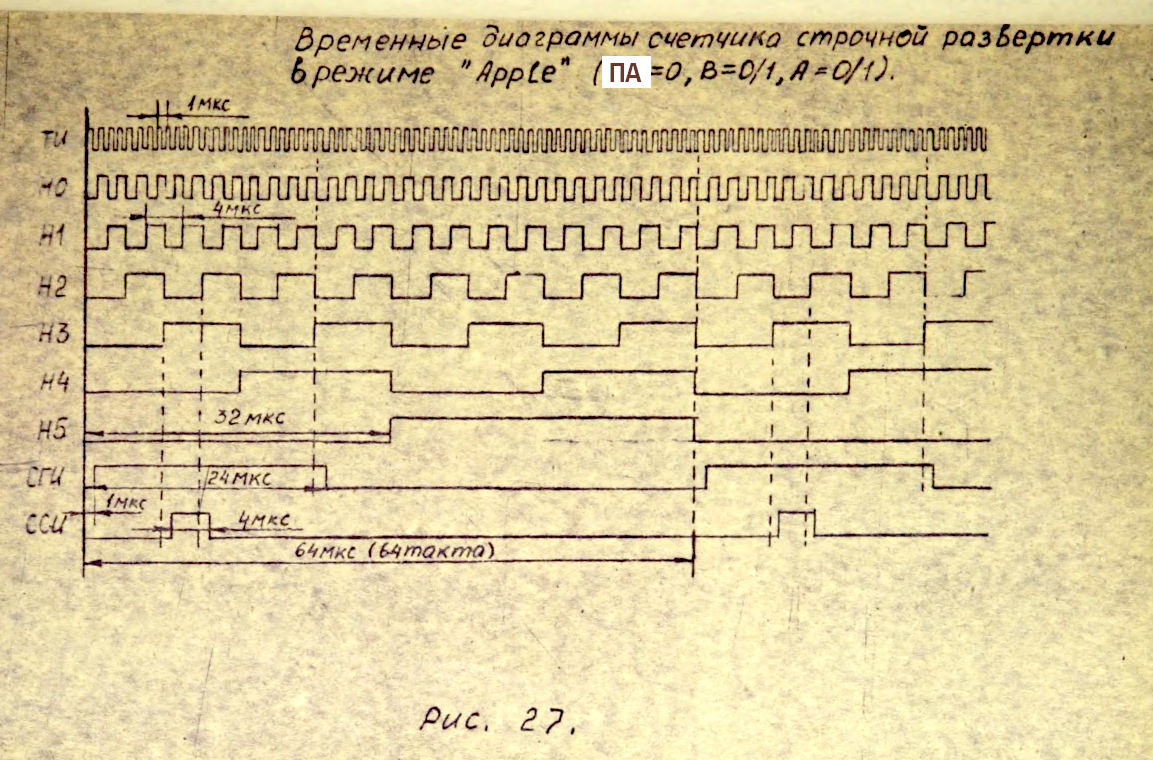 Временные диаграммы счетчика строчной развертки
в режиме "Apple" (ПА=0, В=0/1, А=0/1).
1мкс
ТИ
Н0
4мкс
Н1
Н2
Н3
Н4
32мкс
Н5
СГИ
24мкс
1мкс
ССИ
4мкс
64мкс (64такта)
Рис. 27.